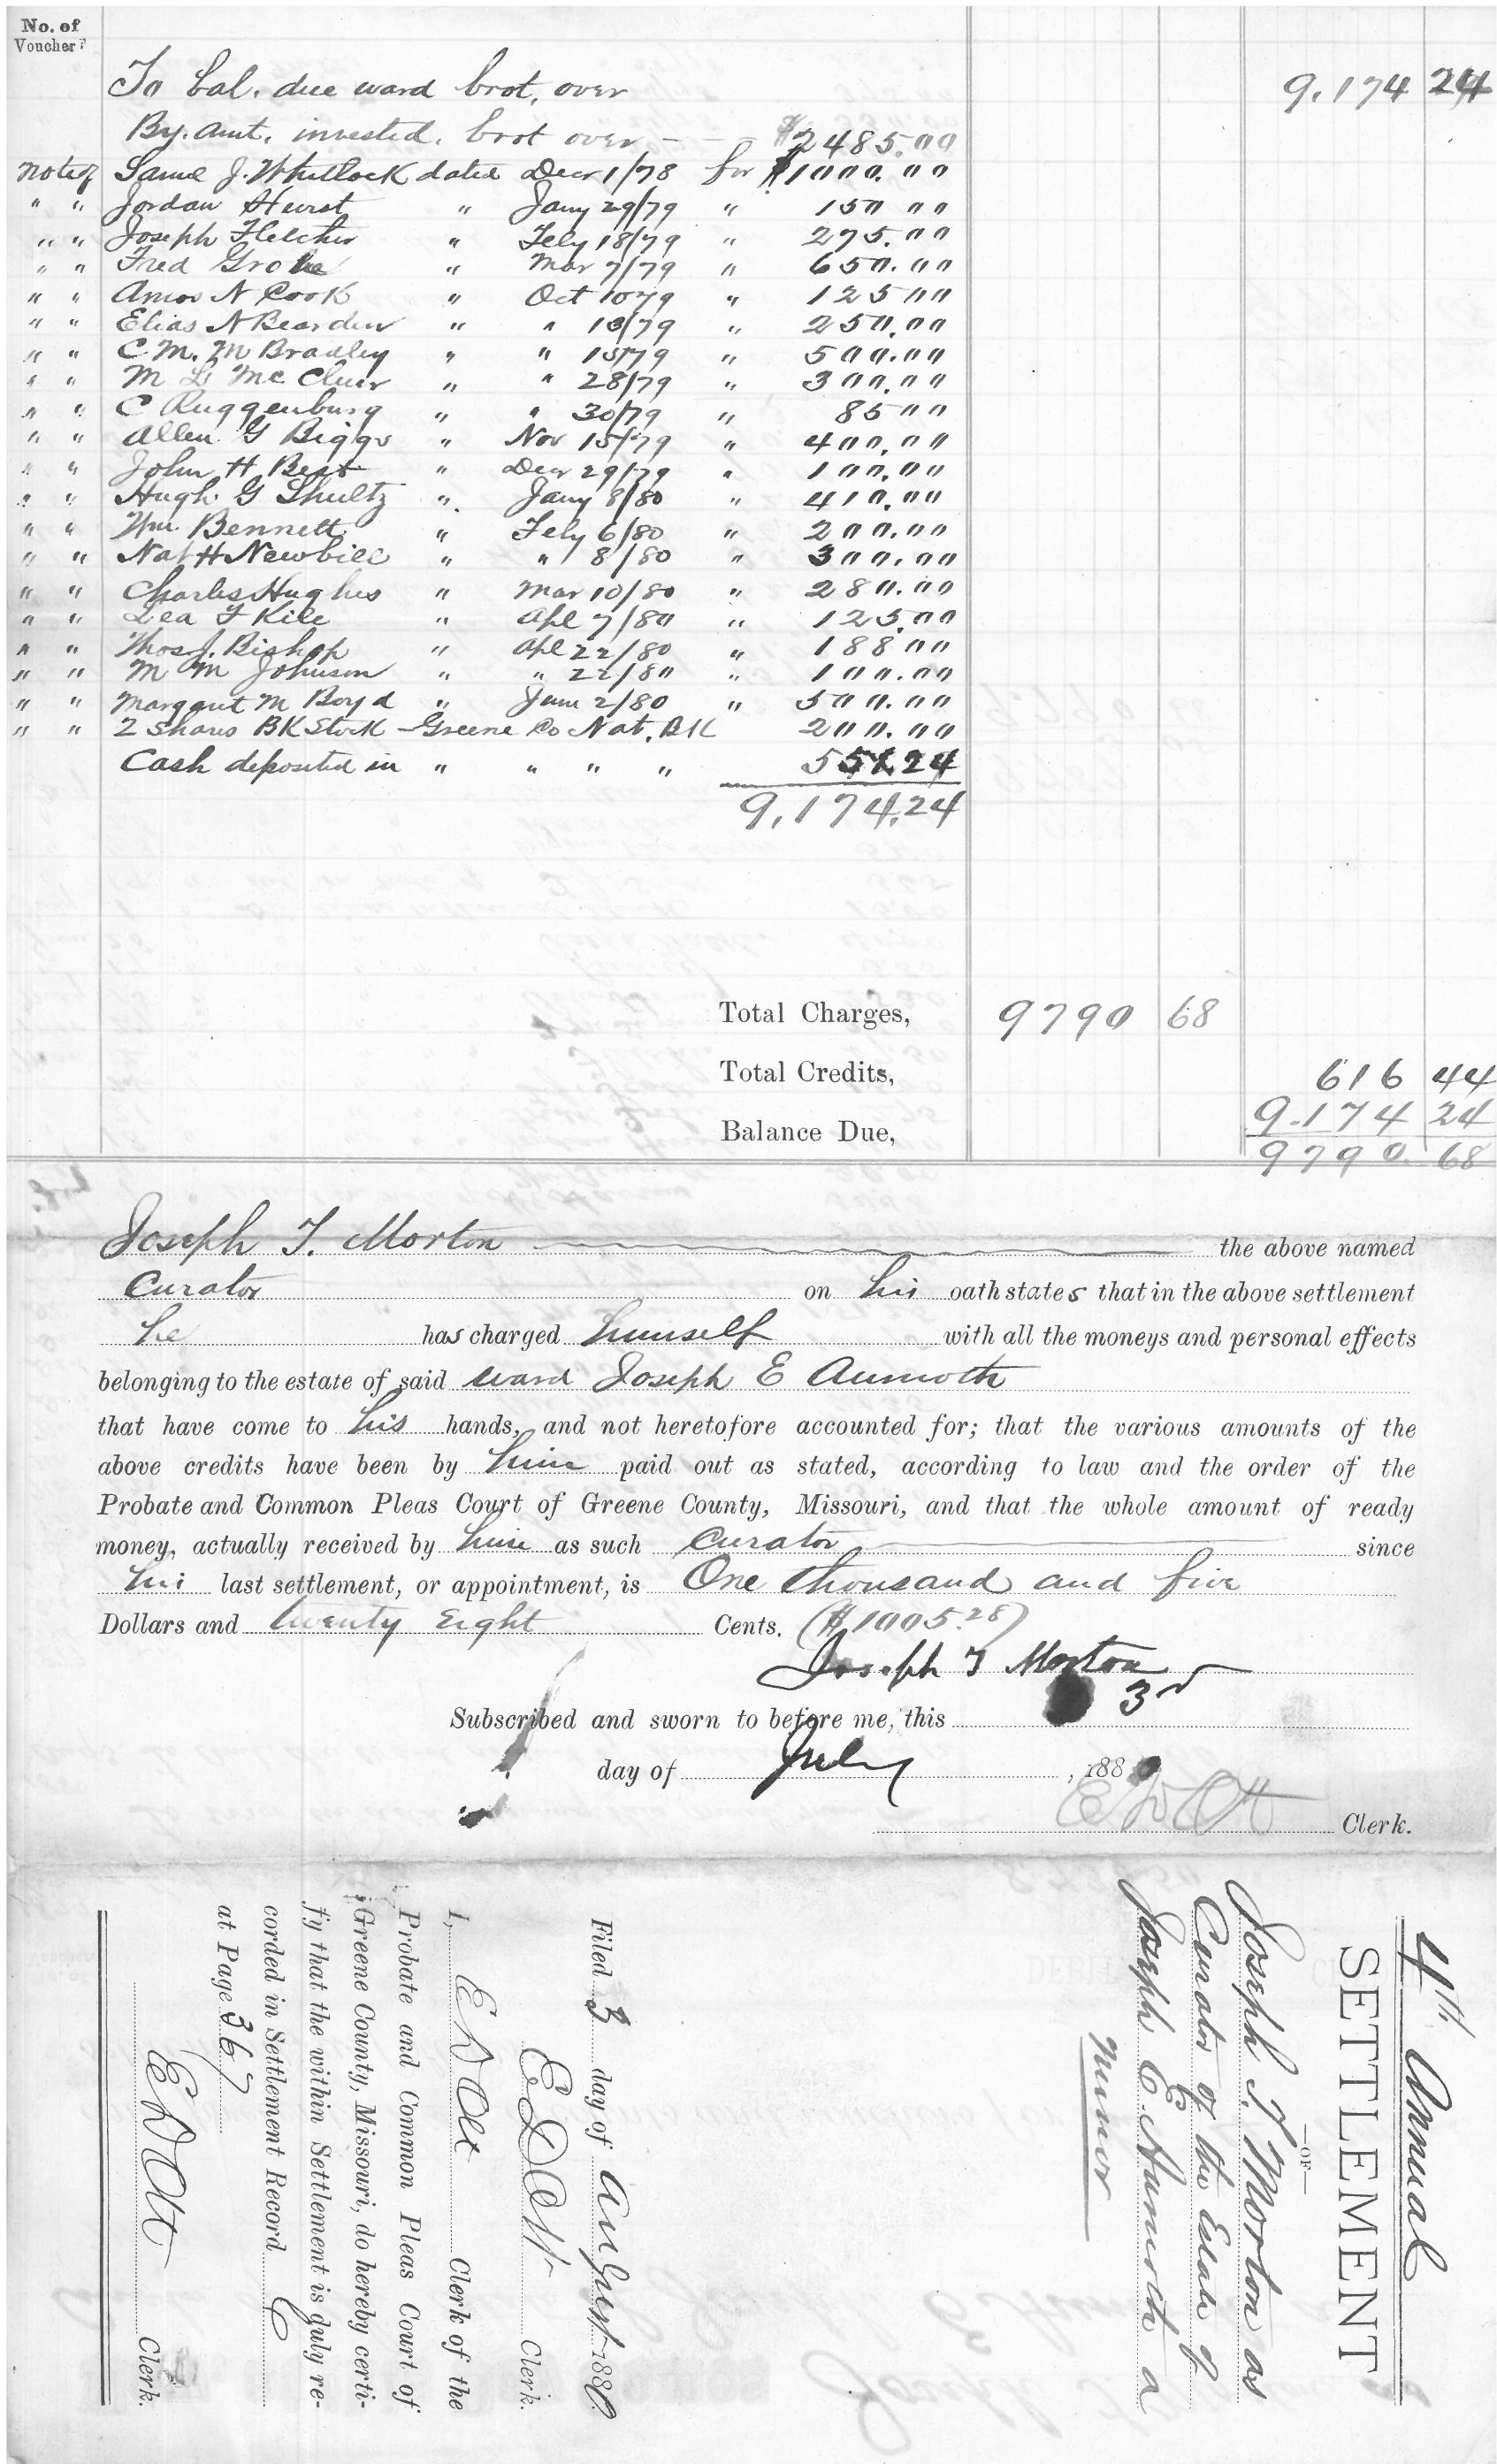 No. of
Vouchers
To bal. due ward brot. over 9.174 24
By. amt. invested. brot over - - $2485.00
Note of Saml J. Whitlock dated Decr 1/78 for $1000.00
" " Jordan Hurst " Jany 29/79 " 150 00
" " Joseph Fletcher " Feby 18/79 " 275.00
" " Fred " Mar 7/79 " 650.00
" " Amos N Cook " Oct 10 79 " 125 00
" " Elias N Bearden " " 13/79 " 250.00
" " C M. M Bradley " " 15/79 " 500.00
" " M L McCluer " " 28/79 " 300.00
" " C Ruggenburg " " 30/79 " 85 00
" " Allen G Biggs " Nov 15/79 " 400.00
" " John H Best " Decr 29/79 " 100.00
" " Hugh G Shultz " Jany 8/80 " 410.00
" " Wm. Bennett " Feby 6/80 " 200.00
" " Nat H Newbill " " 8/80 " 300.00
" " Charles Hughes " Mar 10/80 " 280.00
" " Lea F Kile " Apl 7/80 " 125.00
" " Thos J. Bishop " Apl 22/80 " 188 00
" " M M Johnson " " 22/80 " 100.00
" " Margaret M Boyd " June 2/80 " 500.00
" " 2 Shares BK Stock - Greene Co Nat. BK 200.00
Cash deposited in " " " " 551.24
9,174.24
Total Charges, 9790 68
Total Credits, 616 44
Balance Due, 9.174 24
9790. 68
Joseph T. Morton the above named
Curator on his oath states that in the above settlement
he has charged himself with all the moneys and personal effects
belonging to the estate of said ward Joseph E Aumoth
that have come to his hands, and not heretofore accounted for; that the various amounts of the
above credits have been by him paid out as stated, according to law and the order of the
Probate and Common Pleas Court of Greene County, Missouri, and that the whole amount of ready
money, actually received by him as such Curator since
his last settlement, or appointment, is One thousand and five
Dollars and twenty Eight Cents. ($1005.28)
Joseph T Morton
Subscribed and sworn to before me, this 3d
day of July, 1880
E D Ott Clerk.
4th Annual
SETTLEMENT
—OF—
Joseph T. Morton as
Curator of the Estate of
Joseph E. Aumoth a
Minor
Filed 3 day of August 1880.
E D Ott Clerk.
I, E D Ott Clerk of the
Probate and Common Pleas Court of
Greene County, Missouri, do hereby certi-
fy that the within Settlement is duly re-
corded in Settlement Record C
at Page 367
E D Ott Clerk.